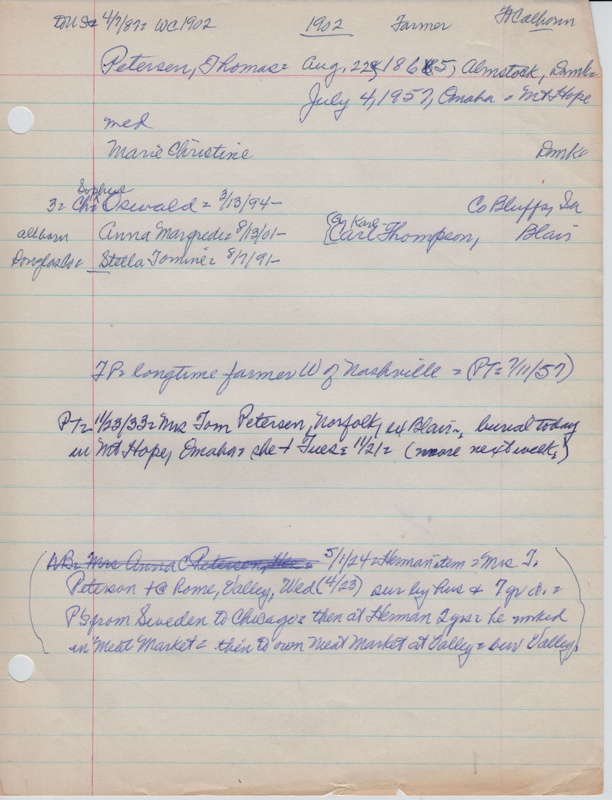 to U.S= 4/7/87= WC1902 1902 Farmer Ft Calhoun
Petersen, Thomas= Aug. 22, 1865, Almstock, Dmk=
July 4, 1957, Omaha = Mt Hope
med
Marie Christine Dmk=
Sophus
3= Ch= Oswald= 3/13/94- Co Bluffs, Ia
all born Anna Margrede= 8/13/01- [Carl Thompson, Blair
Douglas Co= Stella Tomine= 8/7/91-
TP= longtime farmer W of Nashville = (PT= 7/11/57)
PT= 11/23/33= Mrs Tom Petersen, Norfolk, ex Blair-, burial today
in Mt Hope, Omaha= she + Tues= 11/21= (more next week,)
(NB= Mrs Anna C Petersen, = 5/1/24= Herman item = Mrs T.
Peterson +@ Rome, Valley, Wed (4/23) sur by hus + 7 yr d. =
Ps from Sweden to Chicago= then at Herman 2 yrs= he worked
in Meat Market= then to own Meat Market at Valley= bur Valley.)